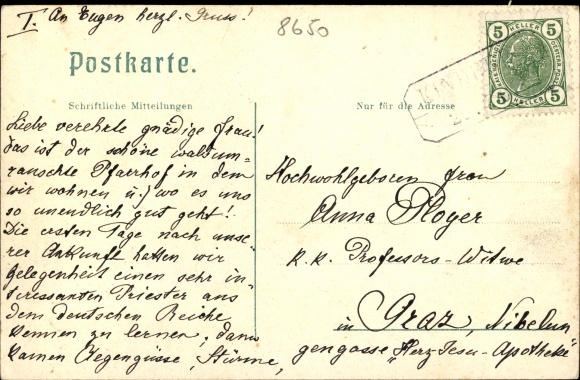 I. An Eugen herzl. Gruss!
8650
Postkarte.
Schriftliche Mitteilungen
Nur für die Adresse
5 HELLER 5
5 HELLER 5
Liebe verehrte gnädige Frau!
das ist der schöne waldum-
rauschte Pfarrhof in dem
wir wohnen u.) wo es uns
so unendlich gut geht!
Die ersten Tage nach unse-
rer Ankunft hatten wir
Gelegenheit einen sehr in-
teressanten Priester aus
dem deutschen Reiche
kennen zu lernen, dann
kamen Regengüsse, Stürme,
Hochwohlgeboren Frau
Anna Ployer
k. k. Professors-Witwe
in Graz, Nibelun
gengasse "Herz Jesu-Apotheke"